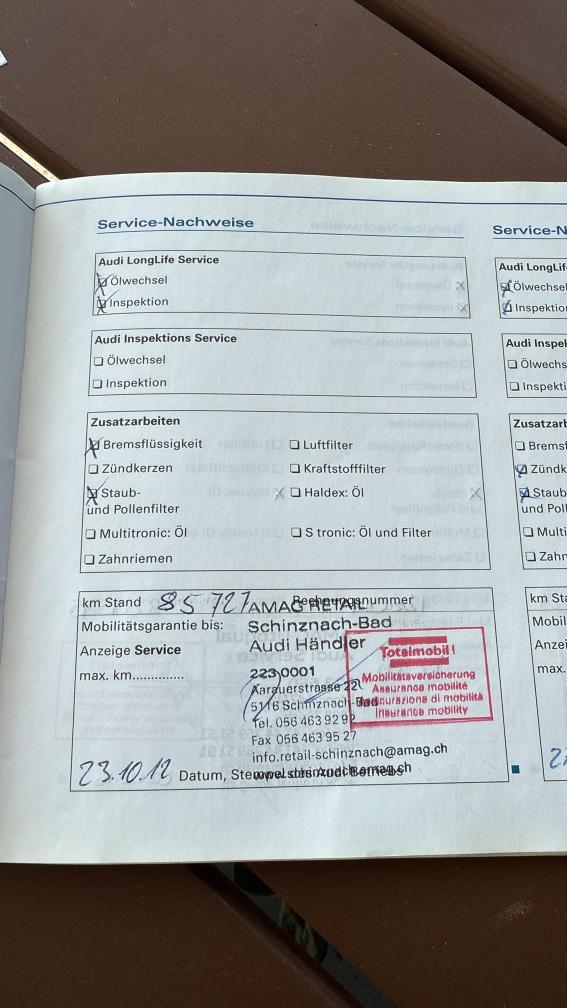 Service-Nachweise
Audi LongLife Service
Ölwechsel
Inspektion
Audi Inspektions Service
Ölwechsel
Inspektion
Zusatzarbeiten
Bremsflüssigkeit
Luftfilter
Zündkerzen
Kraftstofffilter
Staub-
und Pollenfilter
Haldex: Öl
Multitronic: Öl
S tronic: Öl und Filter
Zahnriemen
km Stand 85 727 Rechnungsnummer
AMAG RETAIL
Mobilitätsgarantie bis:
Schinznach-Bad
Audi Händler
Anzeige Service
max. km..............
223 0001
Aarauerstrasse 22
5116 Schinznach-Bad
Tel. 056 463 92 92
Fax 056 463 95 27
info.retail-schinznach@amag.ch
www.schinznach.amag.ch
Totalmobil!
Mobilitätsversicherung
Assurance mobilité
Assicurazione di mobilità
Insurance mobility
23.10.12 Datum, Stempel des Audi Betriebs
Service-N
Audi LongLif
Ölwechsel
Inspektio
Audi Inspe
Ölwechs
Inspekti
Zusatzar
Bremsf
Zündk
Staub
und Poll
Multi
Zahn
km Sta
Mobil
Anzei
max.